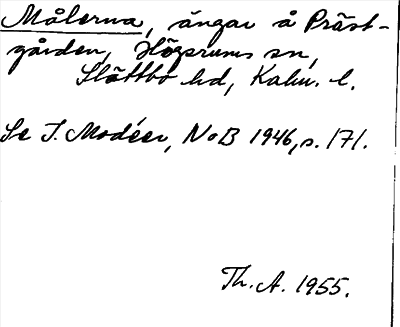 Målerna, ängar å Präst-
gården, Högsrums sn,
Slättbo hd, Kalm. l.
Se I. Modéer, NoB 1946, s. 171.
Th. A. 1955.